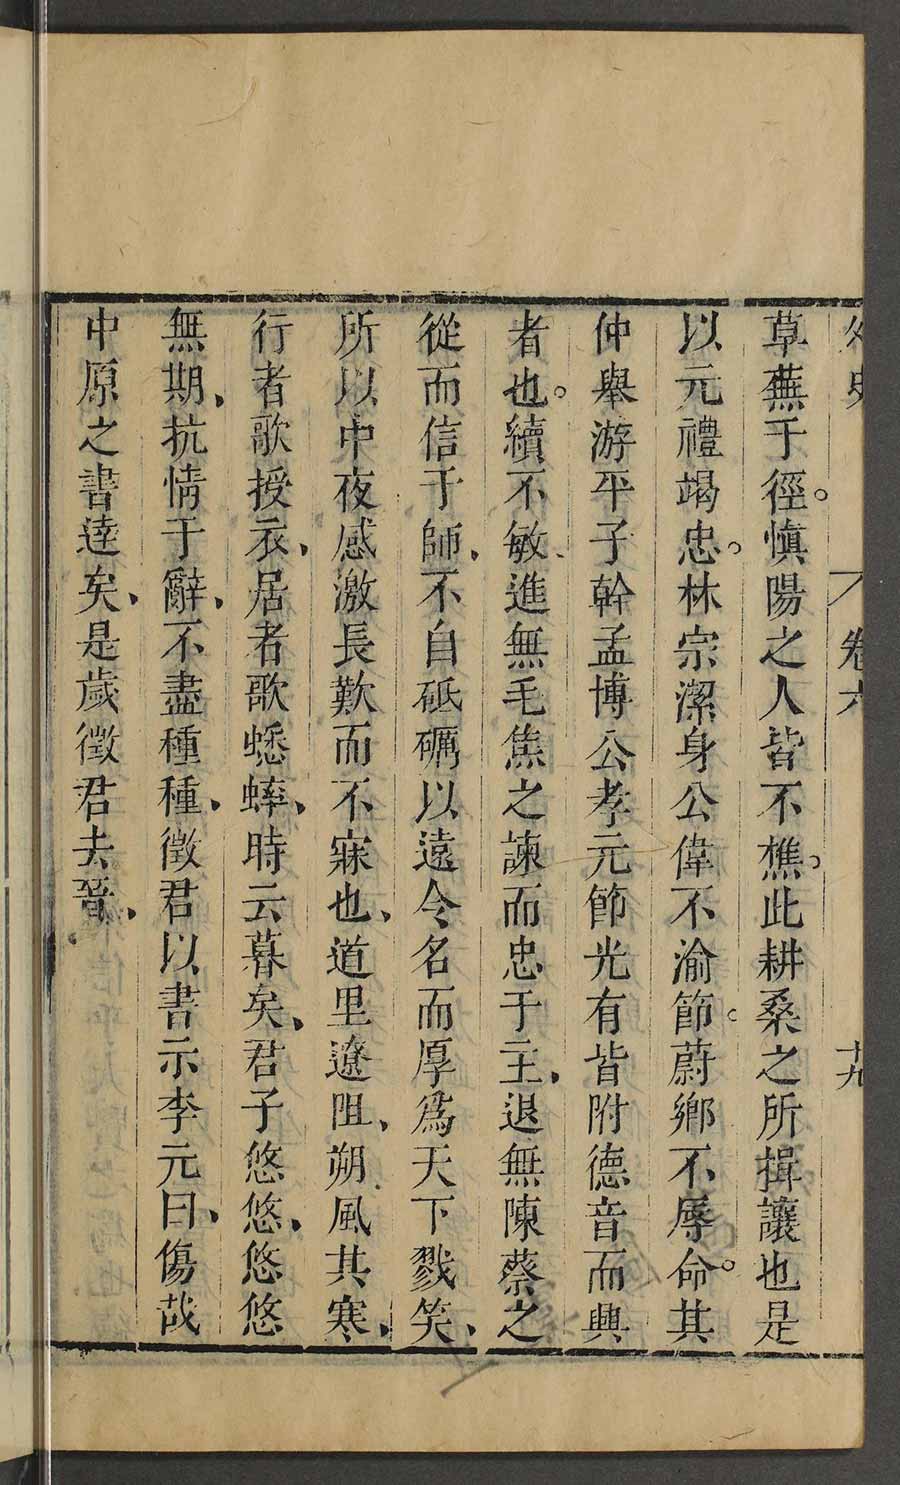 外史 卷六 十九
草蕪于徑。愼陽之人皆不樵。此耕桑之所揖讓也是
以元禮竭忠。林宗潔身公偉不渝節。蔚鄉不辱命。其
仲舉游平子幹孟博公孝元節光有皆附德音而興
者也。續不敏、進無毛焦之諫而忠于主、退無陳蔡之
從而信于師、不自砥礪以遠令名而厚爲天下戮笑、
所以中夜感激長歎而不寐也、道里遼阻、朔風其寒、
行者歌授衣、居者歌蟋蟀、時云暮矣、君子悠悠、悠悠
無期、抗情于辭、不盡種種、徵君以書示李元曰、傷哉
中原之書達矣、是歲徵君去晉、